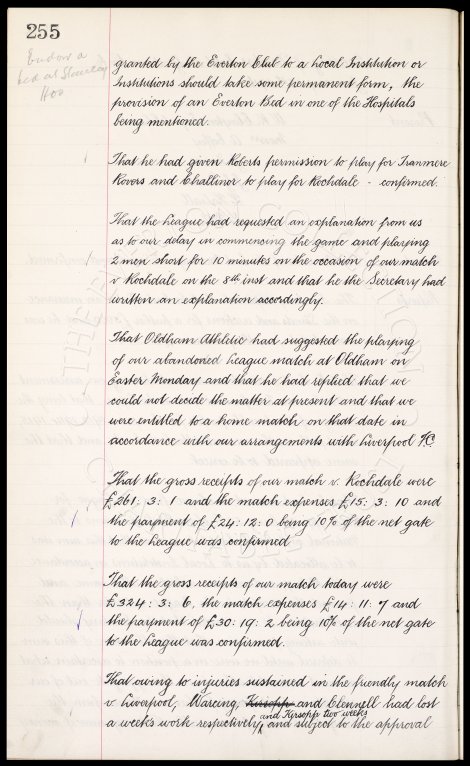 255
Endow a
bed at Stanley
Hos
granted by the Everton Club to a Local Institution or
Institutions should take some permanent form, the
provision of an Everton Bed in one of the Hospitals
being mentioned.
That he had given Roberts permission to play for Tranmere
Rovers and Challinor to play for Rochdale - confirmed.
That the League had requested an explanation from us
as to our delay in commencing the game and playing
2 men short for 10 minutes on the occasion of our match
v Rochdale on the 8th inst and that he the Secretary had
written an explanation accordingly.
That Oldham Athletic had suggested the playing
of our abandoned League match at Oldham on
Easter Monday and that he had replied that we
could not decide the matter at present and that we
were entitled to a home match on that date in
accordance with our arrangements with Liverpool FC.
That the gross receipts of our match v. Rochdale were
£261: 3: 1 and the match expenses £15: 3: 10 and
the payment of £24: 12: 0 being 10% of the net gate
to the League was confirmed
That the gross receipts of our match today were
£324: 3: 6, the match expenses £14: 11: 7 and
the payment of £30: 19: 2 being 10% of the net gate
to the League was confirmed.
That owing to injuries sustained in the friendly match
v Liverpool, Wareing, Kirsopp and Clennell had lost
and Kirsopp two weeks
a weeks work respectively, and subject to the approval